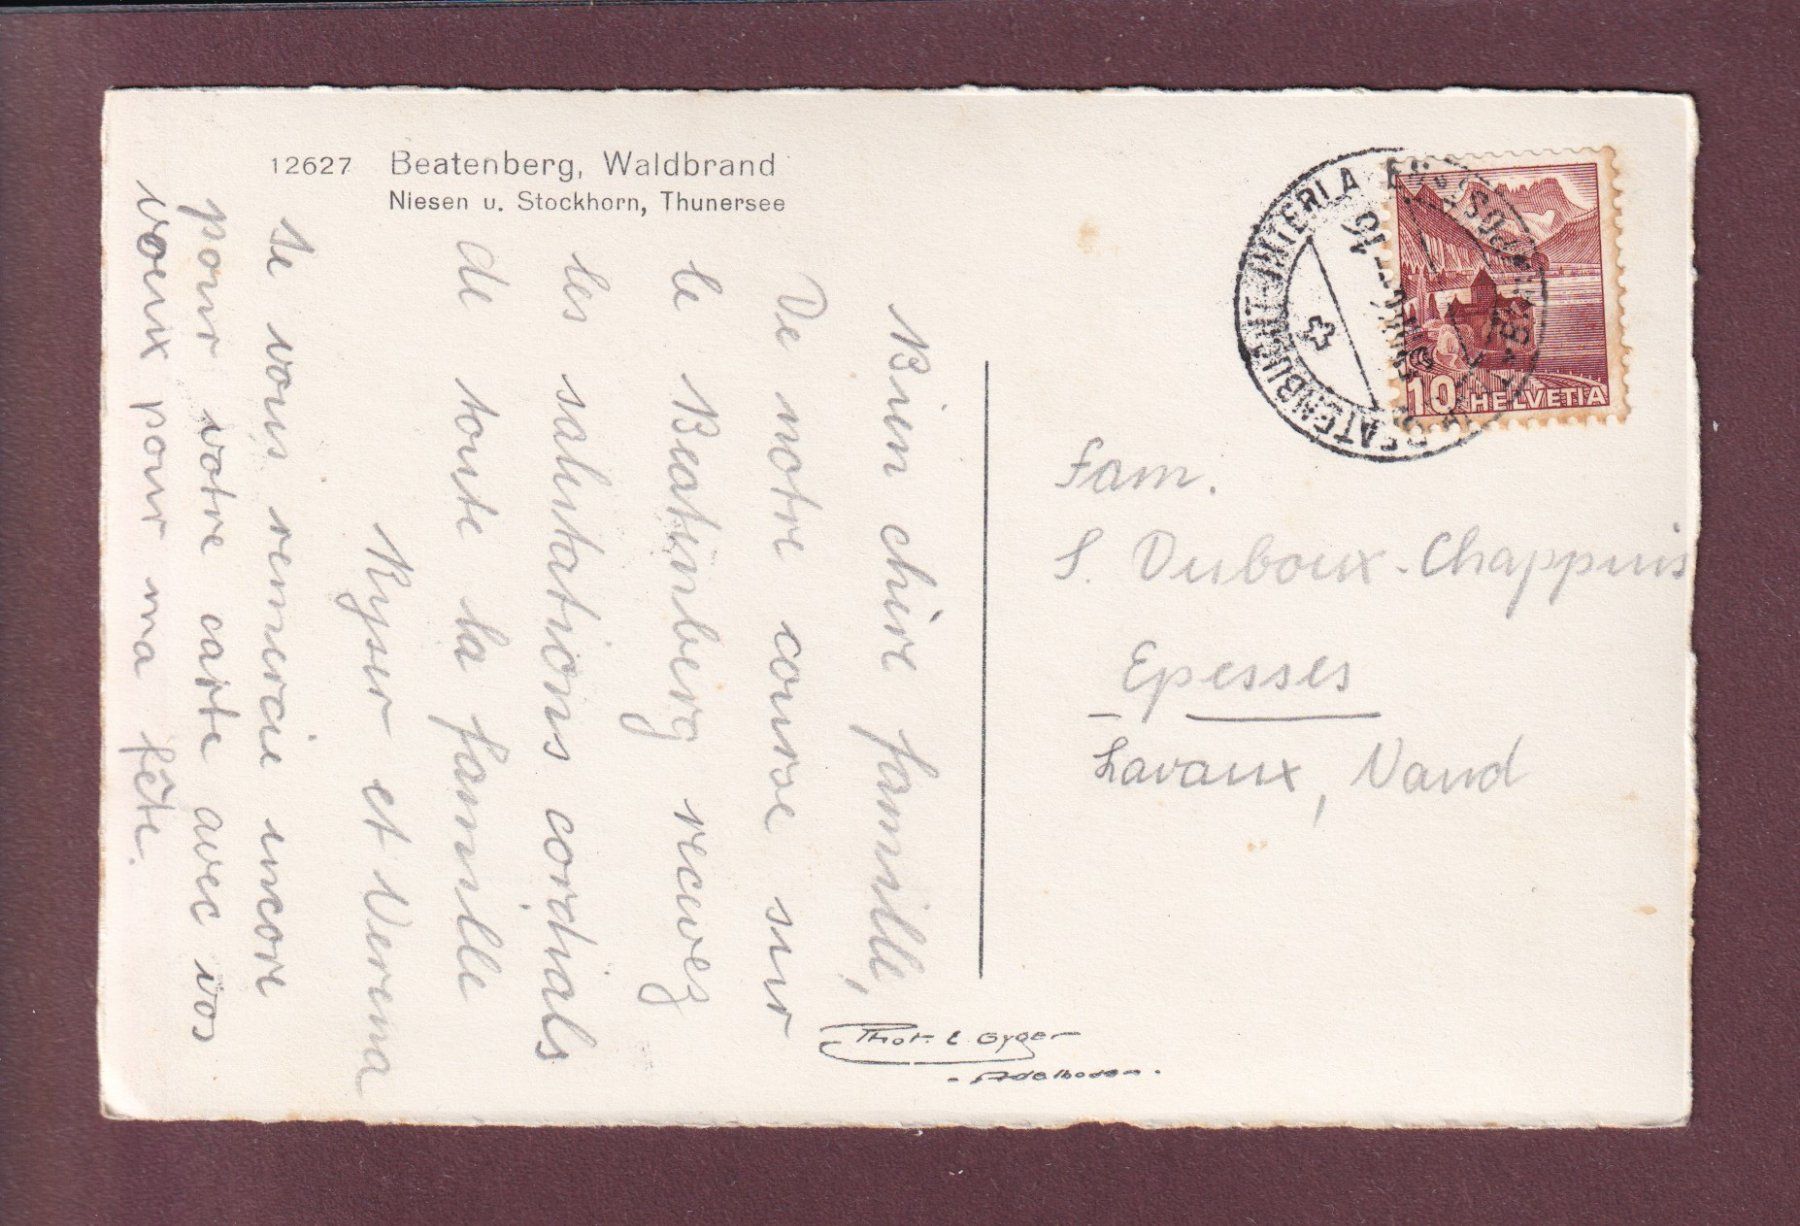 12627 Beatenberg, Waldbrand
Niesen u. Stockhorn, Thunersee
Bien chère famille,
De notre course sur
le Beatenberg recevez
les salutations cordials
de toute la famille
Ryser et Verena
Je vous remercie encore
pour votre carte avec vos
voeux pour ma fête.
10 HELVETIA
BEATENBUCHT-INTERLA
Fam.
S. Duboux-Chappuis
Epesses
Lavaux, Vaud
Phot. E. Gyger
- Adelboden -